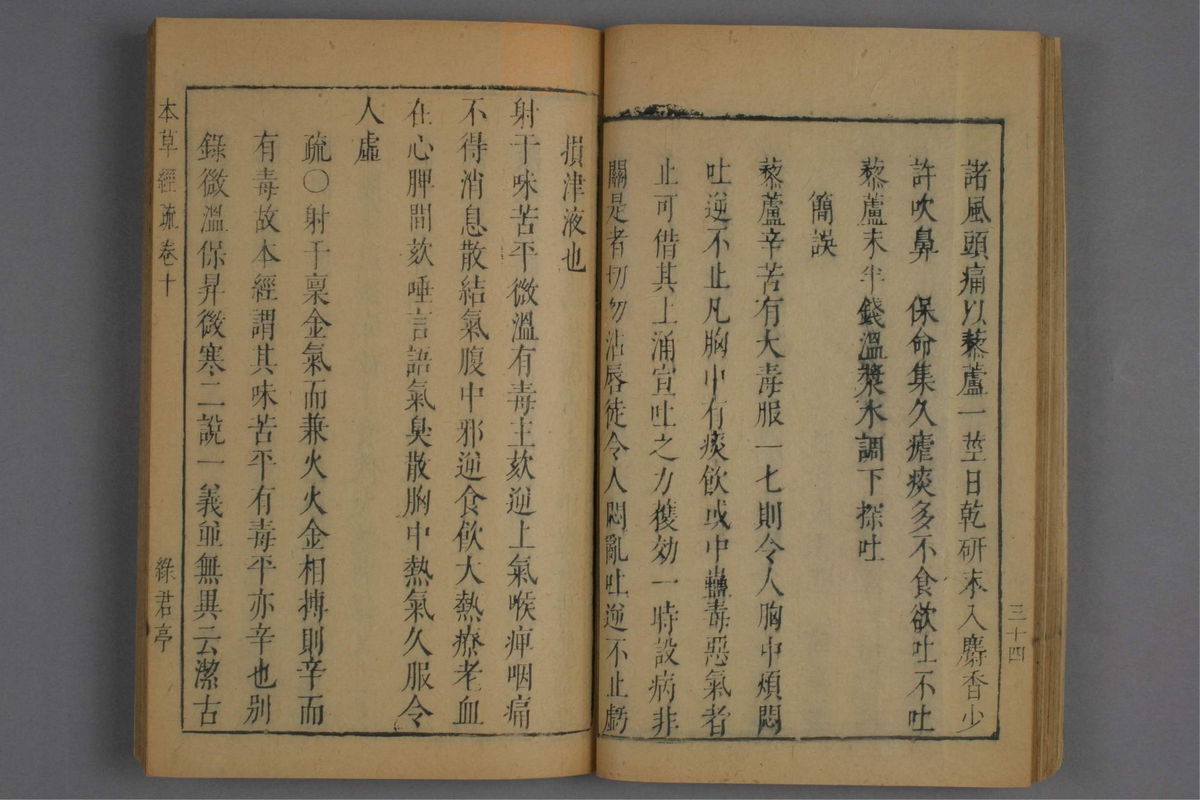 諸風頭痛以藜蘆一莖日乾研末入麝香少
許吹鼻　保命集久瘧痰多不食欲吐不吐
藜蘆末半錢溫漿水調下探吐
簡誤
藜蘆辛苦有大毒服一七則令人胸中煩悶
吐逆不止凡胸中有痰飲或中蠱毒惡氣者
止可借其上涌宣吐之力獲効一時設病非
關是者切勿沾唇徒令人悶亂吐逆不止虧
三十四
損津液也
射干味苦平微溫有毒主欬逆上氣喉痺咽痛
不得消息散結氣腹中邪逆食飲大熱療老血
在心脾間欬唾言語氣臭散胸中熱氣久服令
人虛
疏〇射干稟金氣而兼火火金相搏則辛而
有毒故本經謂其味苦平有毒平亦辛也別
錄微溫保昇微寒二說一義並無異云潔古
本草經疏卷十
綠君亭